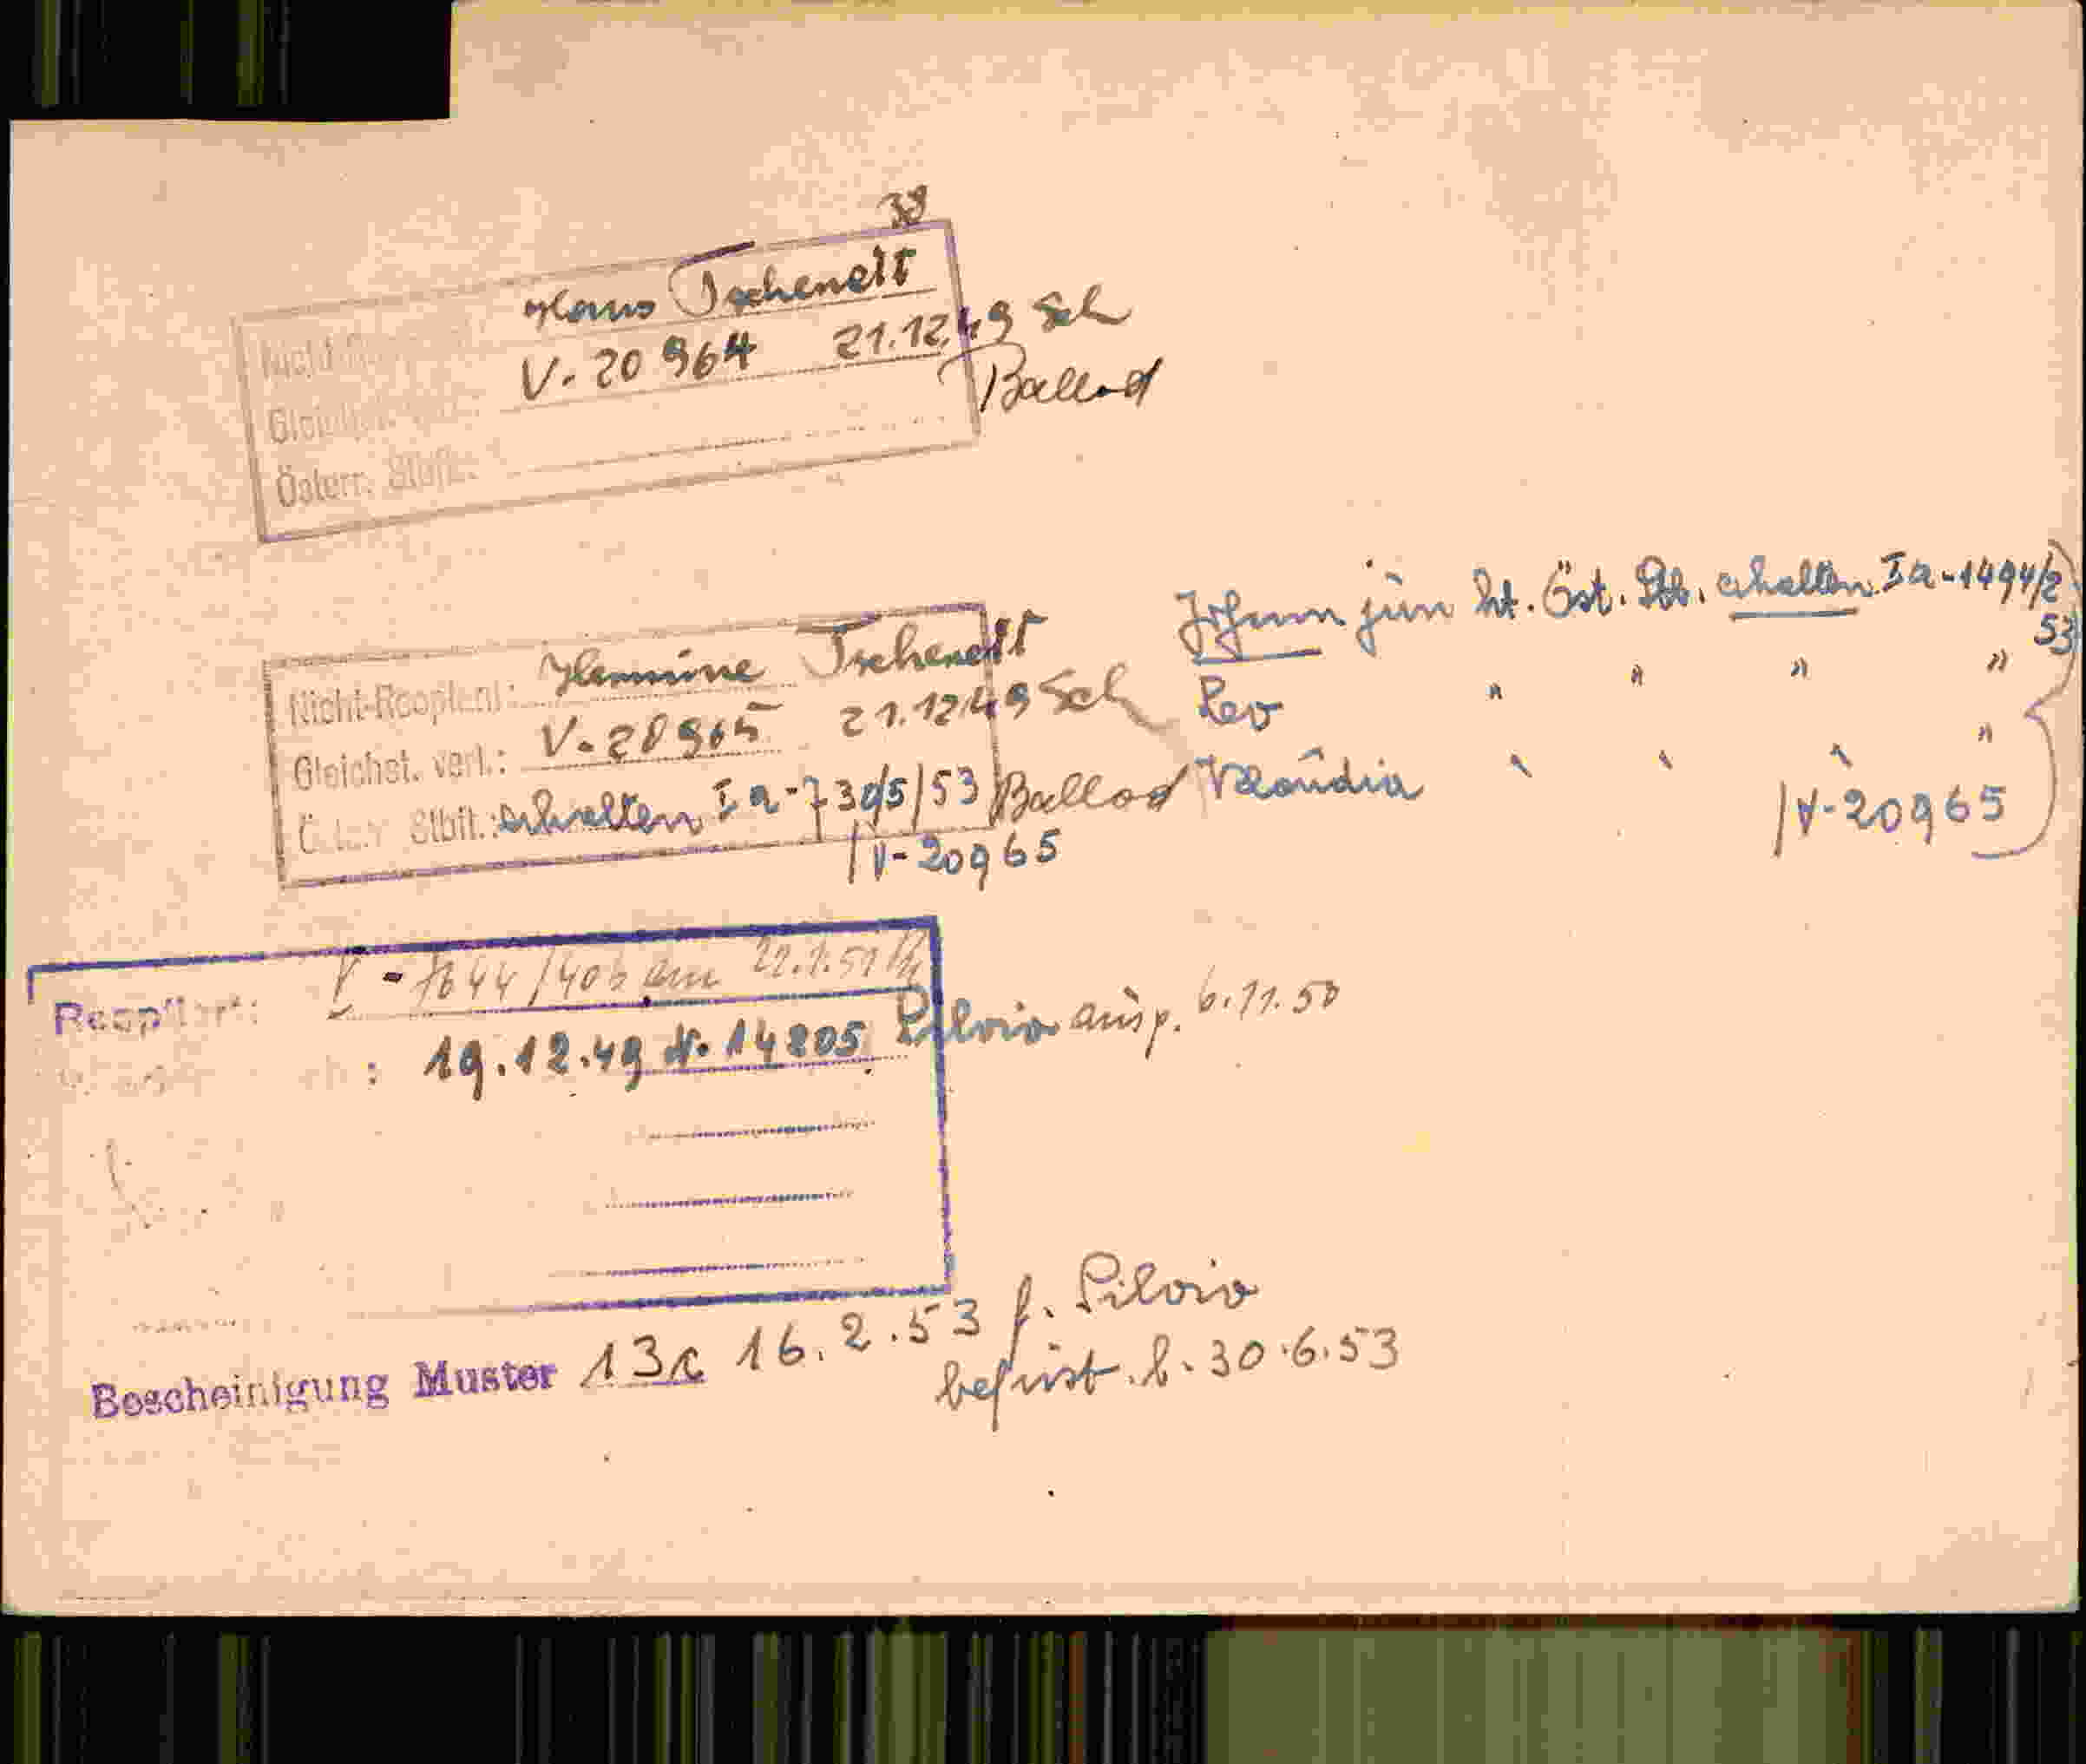 38
Hans Tschenett
V. 20 964 21.12.49 Sch
Gleichst. verl.:
Ballod
Österr. Stbft.:
Nicht-Reoptant: Hermine Tschenett
Gleichst. verl.: V. 20965 21.12.49 Sch
Österr. Stbft.: erhalten Ia-7395/53 Ballod
/V-20965
Johann jun ht. Öst. Stb. erhalten Ia-1494/2
53
Leo " " " "
Klaudia " " " "
/V-20965
Reoptiert: V - 1644/406 am 22.1.51
: 19.12.49 N. 14205 Silvio ausg. 6.11.50
Bescheinigung Muster 13c 16.2.53 f. Silvio
befrist. b. 30.6.53